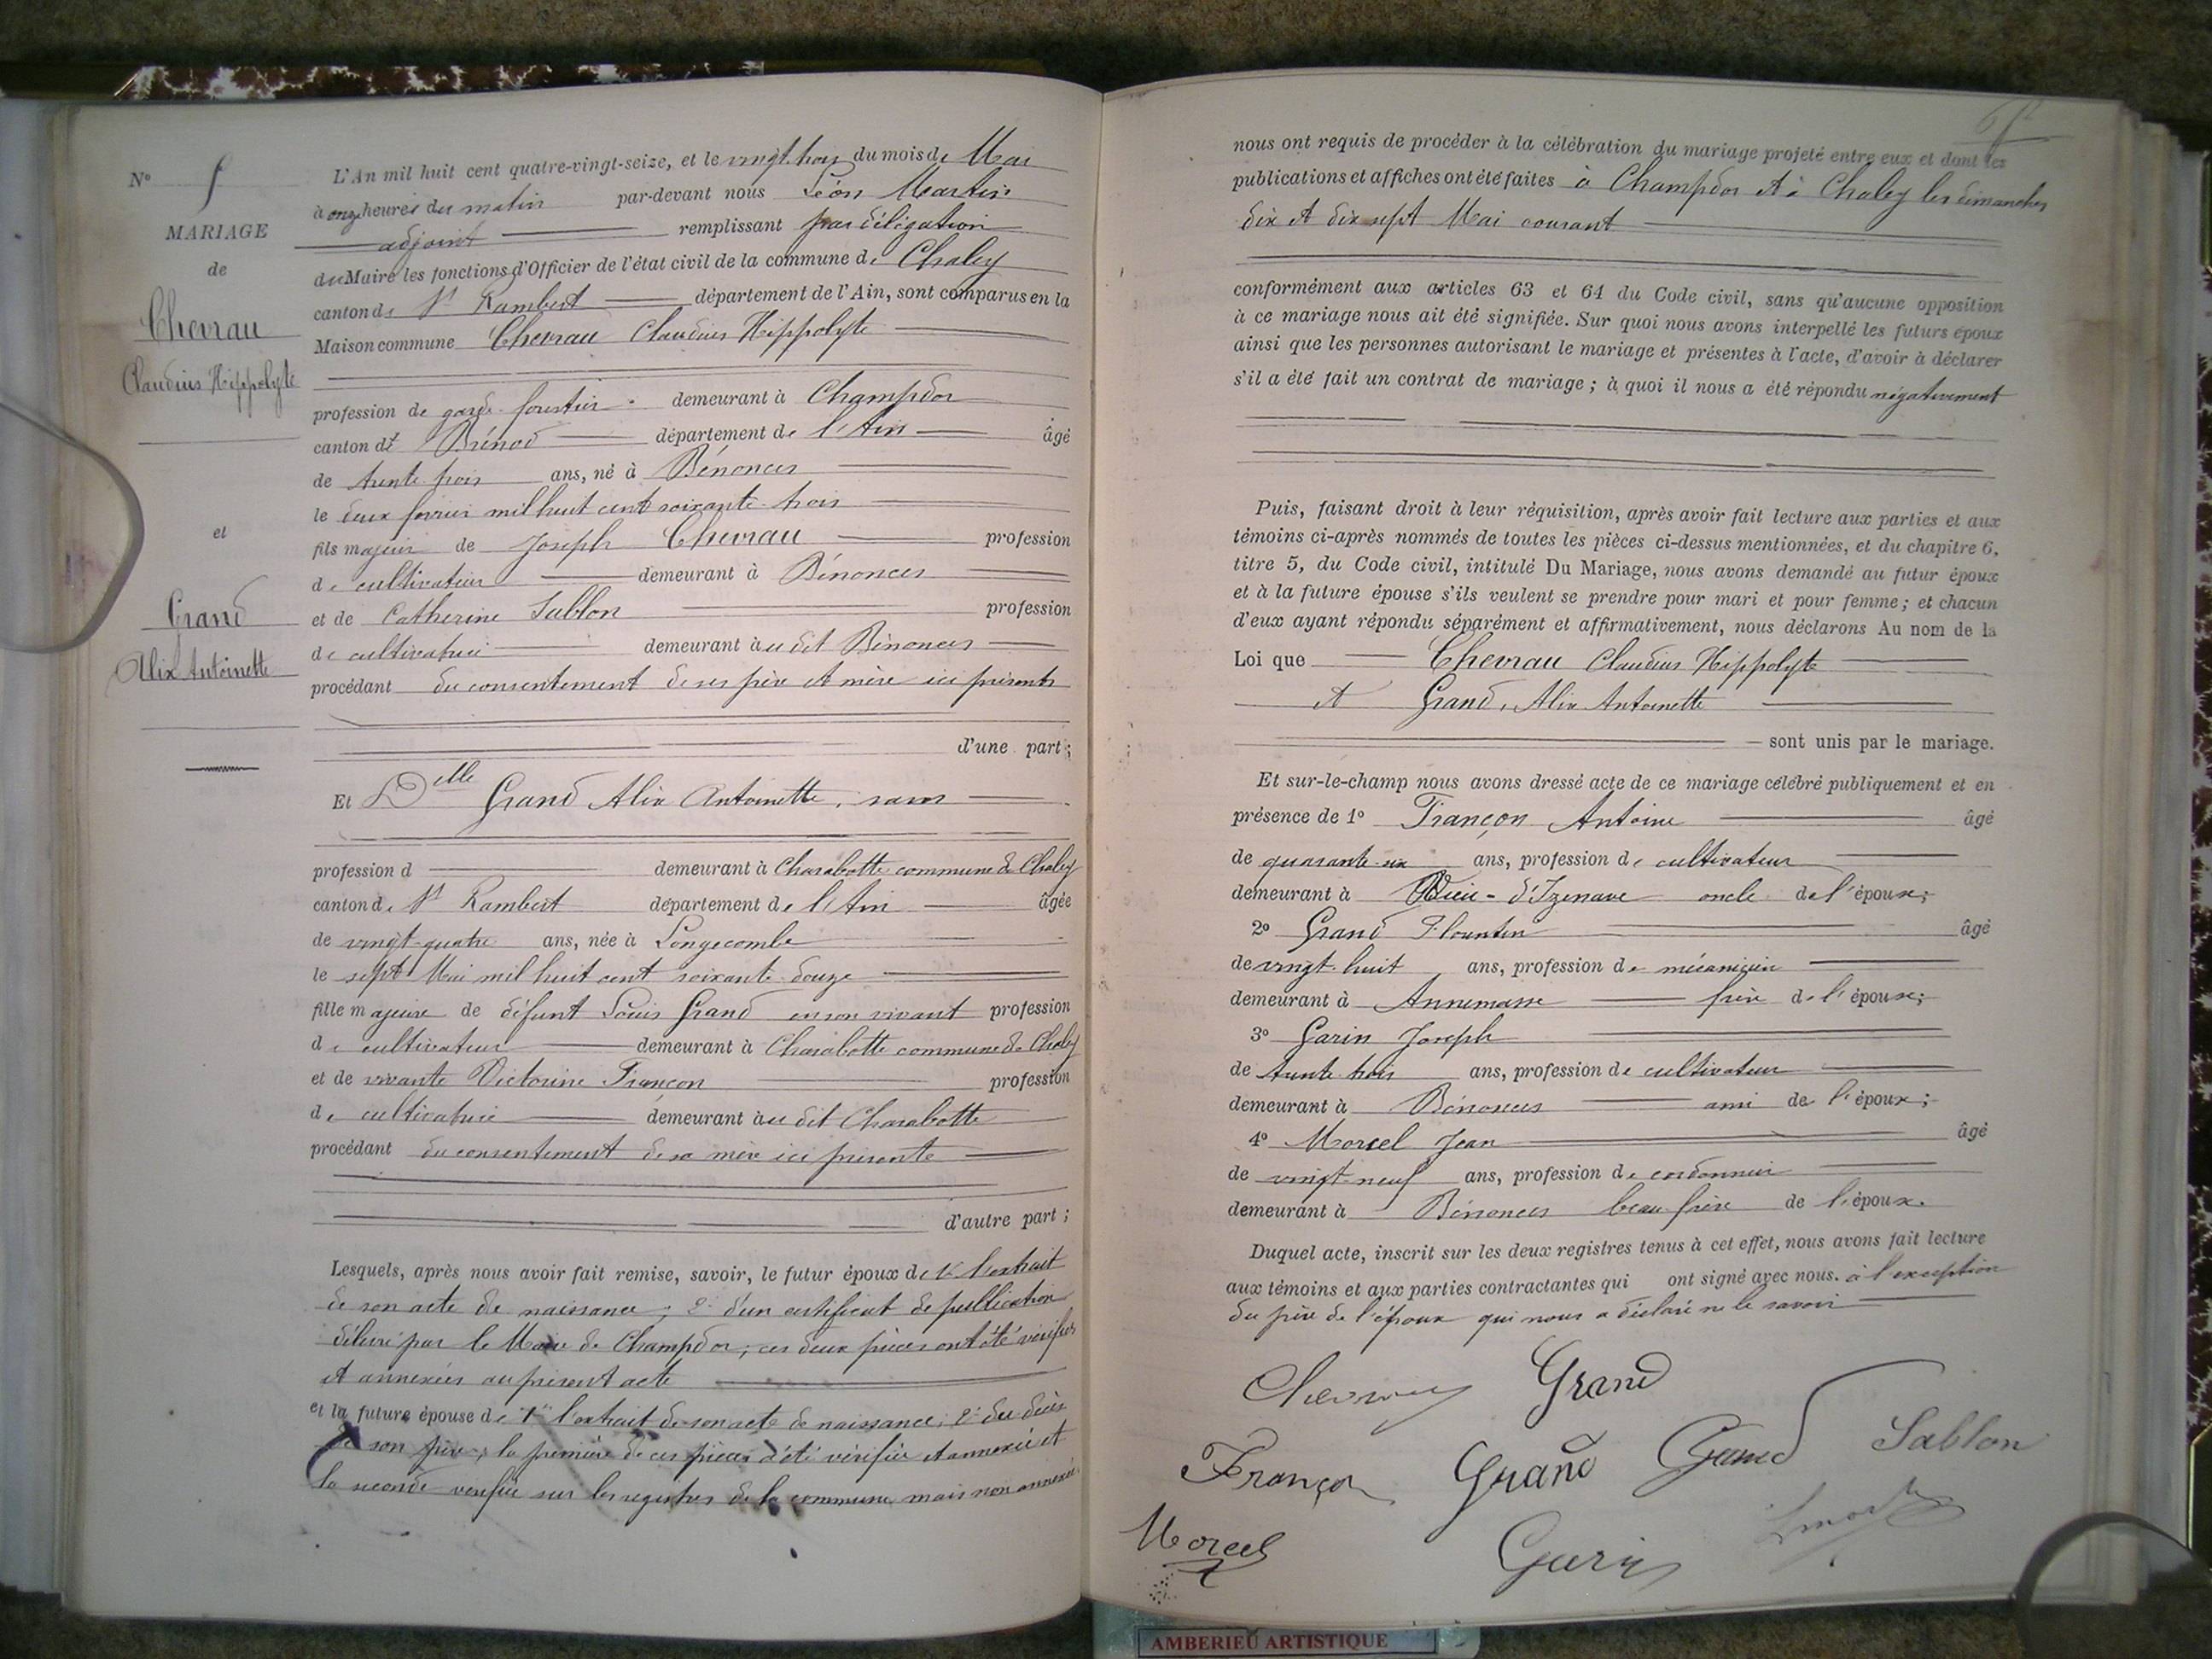 N°
MARIAGE
de
Chevrau
Claudius Hippolyte
et
Grand
Alix Antoinette
L'An mil huit cent quatre-vingt-seize, et le vingt trois du mois de Mai
à onze heures du matin par-devant nous Léon Martin
adjoint remplissant par délégation
du Maire les fonctions d'Officier de l'état civil de la commune de Chaley
canton de St Rambert département de l'Ain, sont comparus en la
Maison commune Chevrau Claudius Hippolyte
profession de garde forestier demeurant à Champdor
canton de Brénod département de l'Ain âgé
de trente trois ans, né à Bénonces
le deux février mil huit cent soixante trois
fils majeur de Joseph Chevrau profession
de cultivateur demeurant à Bénonces
et de Catherine Sablon profession
de cultivatrice demeurant au dit Bénonces
procédant du consentement de ses père et mère ici présents
d'une part;
Et Delle Grand Alix Antoinette, sans
profession d demeurant à Charabotte commune de Chaley
canton de St Rambert département de l'Ain âgée
de vingt-quatre ans, née à Longecombe
le sept Mai mil huit cent soixante douze
fille majeure de défunt Louis Grand en son vivant profession
de cultivateur demeurant à Charabotte commune de Chaley
et de vivante Victorine Françon profession
de cultivatrice demeurant au dit Charabotte
procédant du consentement de sa mère ici présente
d'autre part;
Lesquels, après nous avoir fait remise, savoir, le futur époux de 1° l'extrait
de son acte de naissance; 2° d'un certificat de publication
délivré par le Maire de Champdor; ces deux pièces ont été vérifiées
et annexées au présent acte
et la future épouse de 1° l'extrait de son acte de naissance; 2° du décès
de son père; la première de ces pièces a été vérifiée et annexée et
la seconde vérifiée sur les registres de la commune mais non annexée
nous ont requis de procéder à la célébration du mariage projeté entre eux et dont les
publications et affiches ont été faites à Champdor et à Chaley les dimanches
dix et dix sept Mai courant
conformément aux articles 63 et 64 du Code civil, sans qu'aucune opposition
à ce mariage nous ait été signifiée. Sur quoi nous avons interpellé les futurs époux
ainsi que les personnes autorisant le mariage et présentes à l'acte, d'avoir à déclarer
s'il a été fait un contrat de mariage; à quoi il nous a été répondu négativement
Puis, faisant droit à leur réquisition, après avoir fait lecture aux parties et aux
témoins ci-après nommés de toutes les pièces ci-dessus mentionnées, et du chapitre 6,
titre 5, du Code civil, intitulé Du Mariage, nous avons demandé au futur époux
et à la future épouse s'ils veulent se prendre pour mari et pour femme; et chacun
d'eux ayant répondu séparément et affirmativement, nous déclarons Au nom de la
Loi que Chevrau Claudius Hippolyte
et Grand, Alix Antoinette
sont unis par le mariage.
Et sur-le-champ nous avons dressé acte de ce mariage célébré publiquement et en
présence de 1° Françon Antoine âgé
de quarante-six ans, profession de cultivateur
demeurant à Vieu-d'Izenave oncle de l'épouse;
2° Grand Florentin âgé
de vingt-huit ans, profession de mécanicien
demeurant à Annemasse frère de l'épouse;
3° Garin Joseph
de trente trois ans, profession de cultivateur
demeurant à Bénonces ami de l'époux;
4° Morcel Jean âgé
de vingt-neuf ans, profession de cordonnier
demeurant à Bénonces beau-frère de l'époux.
Duquel acte, inscrit sur les deux registres tenus à cet effet, nous avons fait lecture
aux témoins et aux parties contractantes qui ont signé avec nous. à l'exception
du père de l'époux qui nous a déclaré ne le savoir
Chevrau Grand
Françon Grand Grand Sablon
Morcel Garin
AMBERIEU ARTISTIQUE